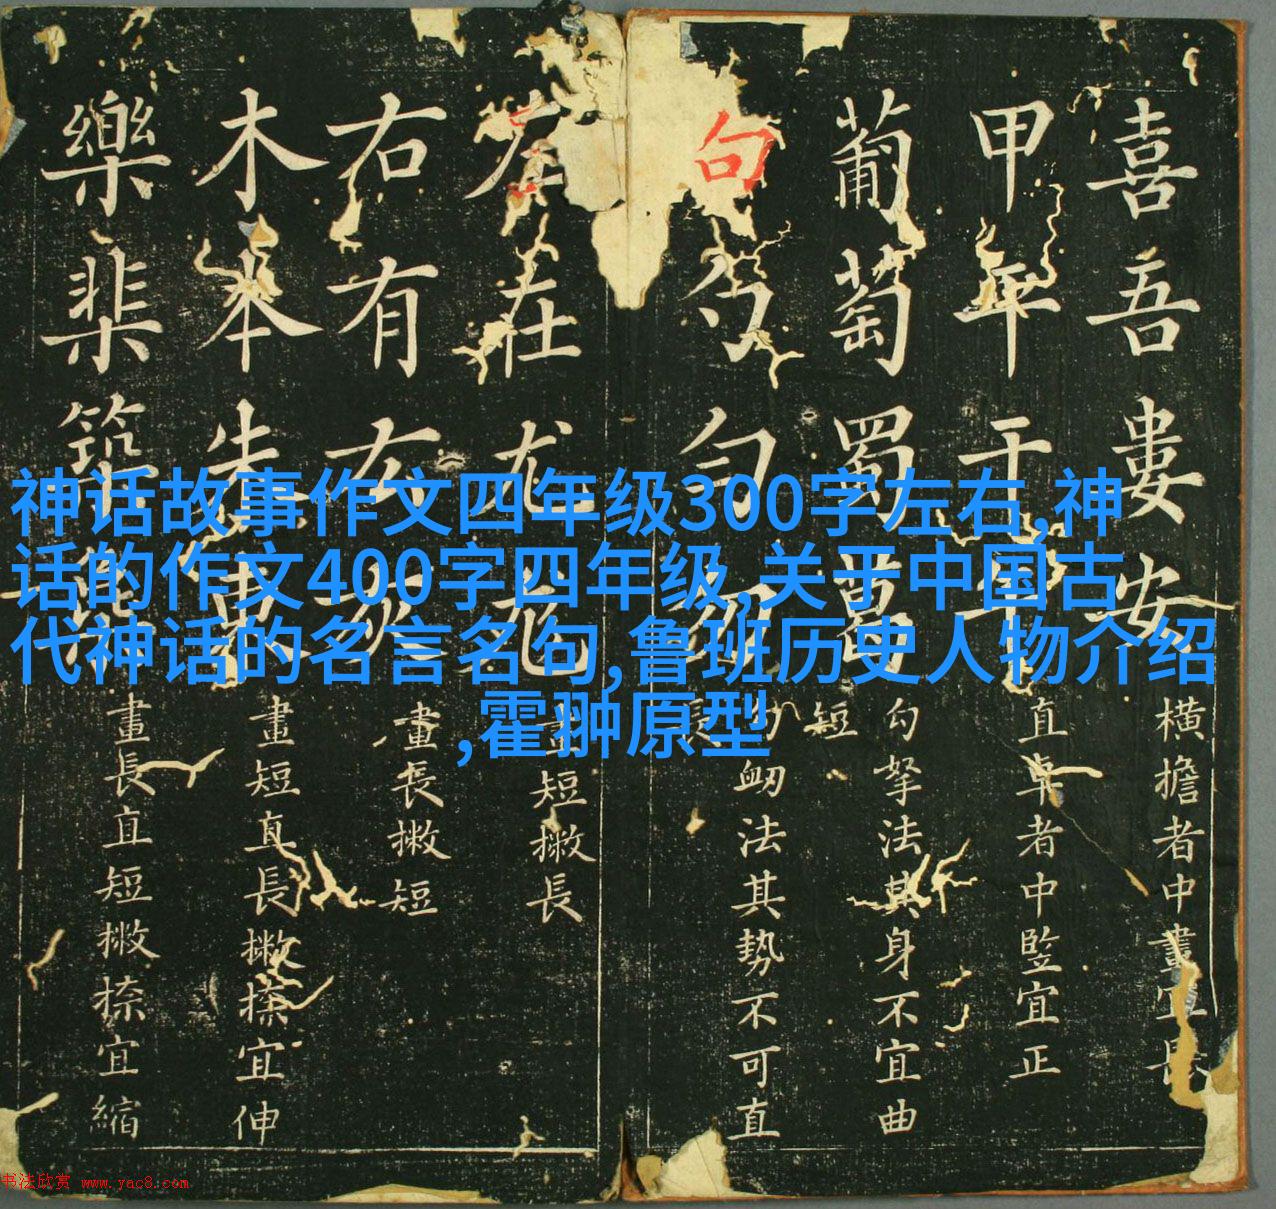 神话故事作文四年级300字左右,神
话的作文400字四年级,关于中国古
代神话的名言名句,鲁班历史人物介绍
,霍翀原型
喜吾婁安
橫擔者中畫宜
甲平干
直卓者中竪宜正
葡萄蜀萬
勾拏法其身不宜曲
短
句勺勻勿
勾衂法其势不可直
左在尤尨
畫短撇長
右有
畫長撇短
木本朱
畫短直長撇捺宜伸
樂棐築
畫長直短撇捺宜縮
书法欣赏 www.yac8.com